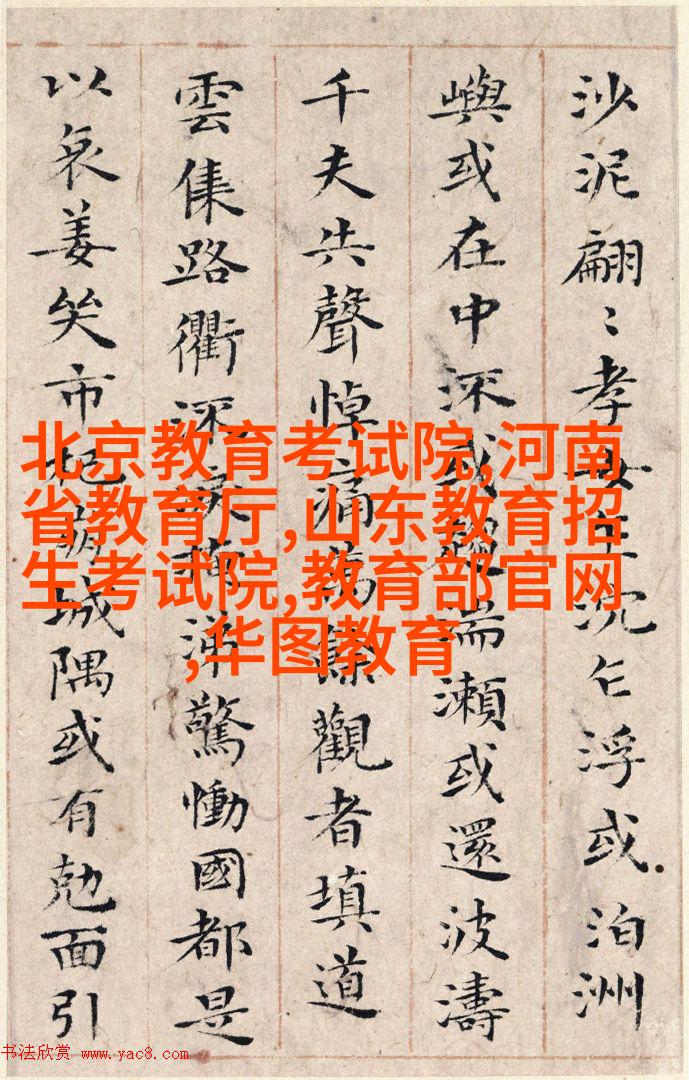 沙泥翩〻孝女乍沉乍浮或泊洲
嶼或在中深或趨湍瀨或還波濤
千夫共聲悼痛萬餘觀者填道
雲集路衢流淚掩涕驚慟國都是
以哀姜哭市杞崩城隅或有勊面引
北京教育考试院,河南
省教育厅,山东教育招
生考试院,教育部官网
,华图教育
书法欣赏 www.yac8.com